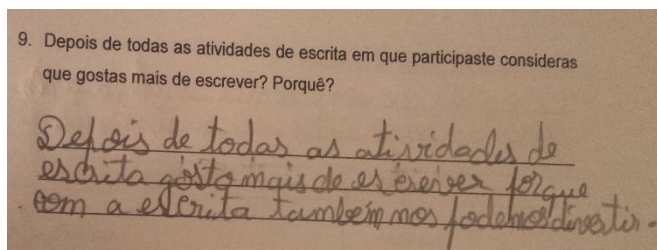 9. Depois de todas as atividades de escrita em que participaste consideras
que gostas mais de escrever? Porquê?
Depois de todas as atividades de
escrita gosto mais de escrever porque
com a escrita também nos podemos divertir.